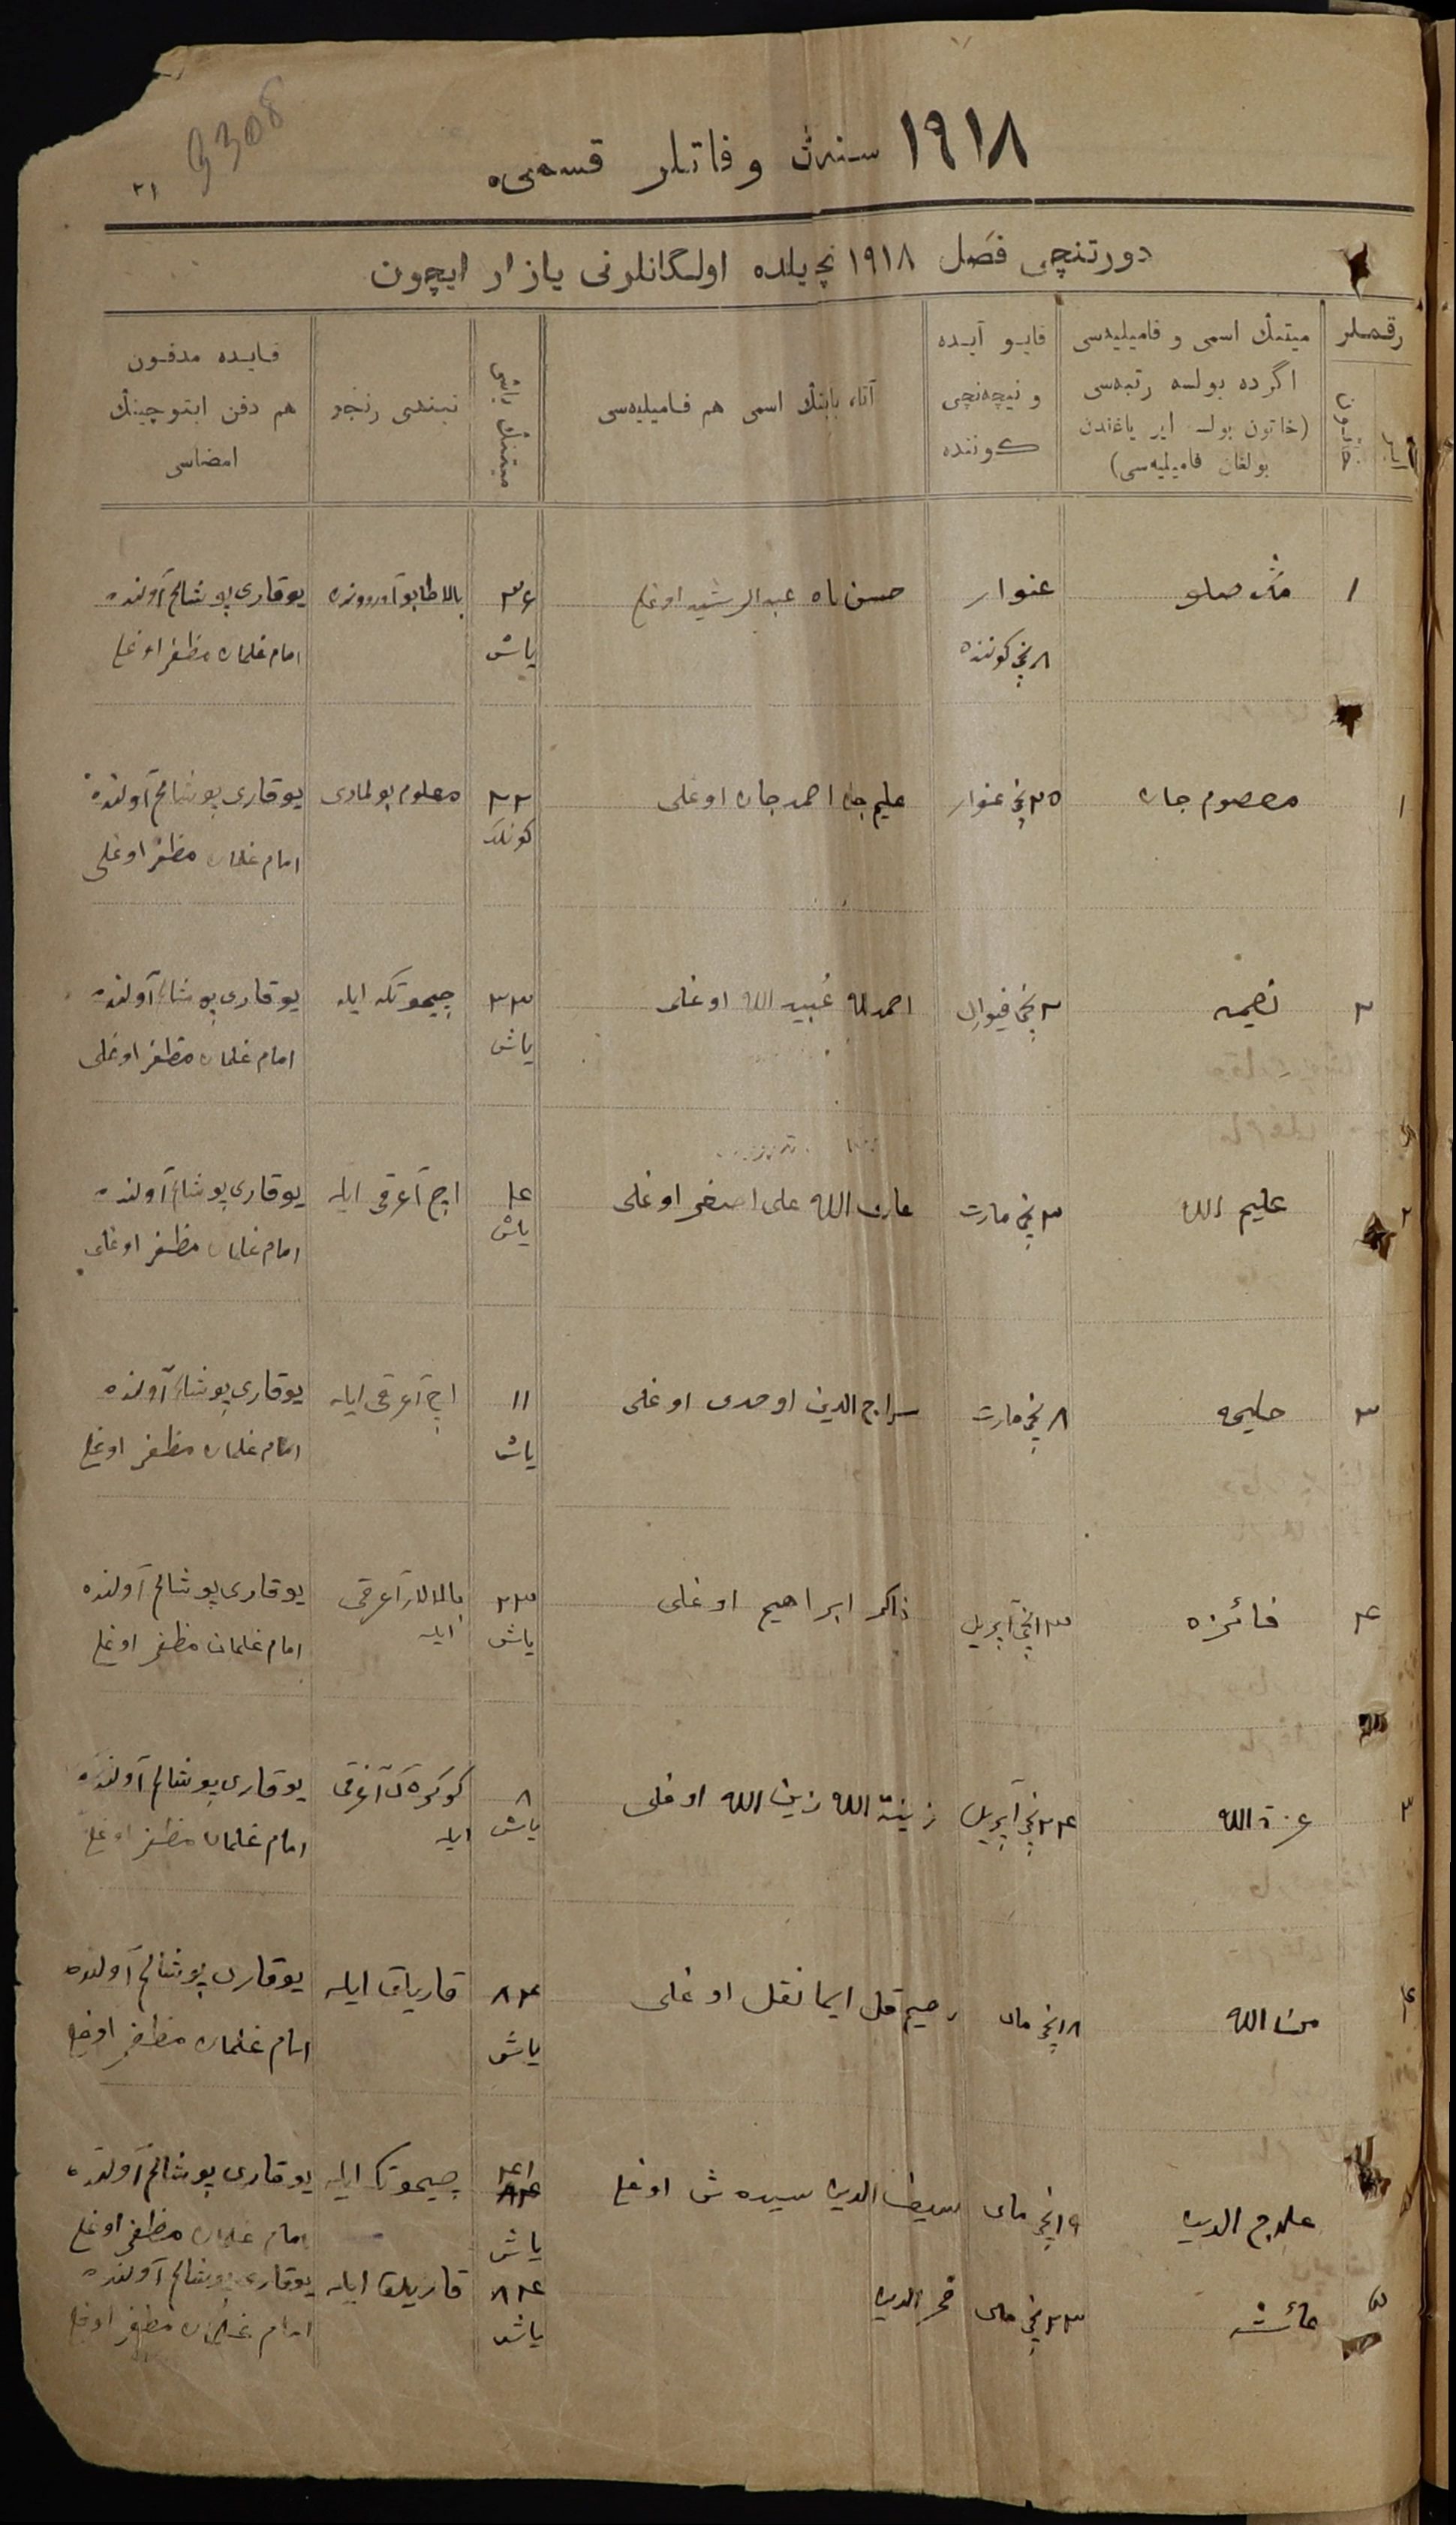 9308
٢١
١٩١٨ سنەنڭ وفاتلر قسمەیی
دورتنچی فصل ١٩١٨ نچی یلده اولگانلرنی یازار ایچون
رقملر
میتنڭ اسمی و فامیلیەسی
اگرده بولسه رتبەسی
(خاتون بولسه ایر یاغندن
بولغان فامیلیەسی)
قایو آیده
و نیچەنچی
كوننده
آتا، بابانڭ اسمی هم فامیلیەسی
میتنڭ یاشی
نیندی رنجدن
قایده مدفون
هم دفن ایتوچینڭ
امضاسی
١ عنوار حسن عبدالرشید اوغلی ٣٤ یوقاری پوشالم آولنده
٨ نچی كوننده یاش امام غلمان مظفر اوغلی
١ معصوم جان ٢٥ نچی عنوار علیم جان احمد جان اوغلی ٢٢ معلوم بولمادی یوقاری پوشالم آولنده
كونلك امام غلمان مظفر اوغلی
٢ نعیمه ٢ نچی فیوال احمدالله عبیدالله اوغلی ٣٣ چیحوتكه ایله یوقاری پوشالم آولنده
یاش امام غلمان مظفر اوغلی
٢ علیم الله ٣ نچی مارت عارف الله علی اصغر اوغلی ١٤ اچ آغرقی ایله یوقاری پوشالم آولنده
یاش امام غلمان مظفر اوغلی
٣ حلیمه ٨ نچی مارت سراج الدین اوحدی اوغلی ١١ اچ آغرقی ایله یوقاری پوشالم آولنده
یاش امام غلمان مظفر اوغلی
٤ فائزه ١٣ نچی آپریل ذاكر ابراهیم اوغلی ٢٣ بالالار آغرقی یوقاری پوشالم آولنده
یاش ایله امام غلمان مظفر اوغلی
٣ عزة الله ٢٤ نچی آپریل زینة الله زین الله اوغلی ٨ كوكرەك آغرقی یوقاری پوشالم آولنده
یاش ایله امام غلمان مظفر اوغلی
٤ من الله ١٨ نچی مای رحیم قل ایمانقل اوغلی ٨٤ قارتلق ایله یوقاری پوشالم آولنده
یاش امام غلمان مظفر اوغلی
علاج الدین ١٩ نچی مای سیف الدین اوغلی ٤١ چیحوتكه ایله یوقاری پوشالم آولنده
یاش امام غلمان مظفر اوغلی
٥ عائشه ٢٣ نچی مای فخرالدین ٨٤ قارتلق ایله یوقاری پوشالم آولنده
یاش امام غلمان مظفر اوغلی